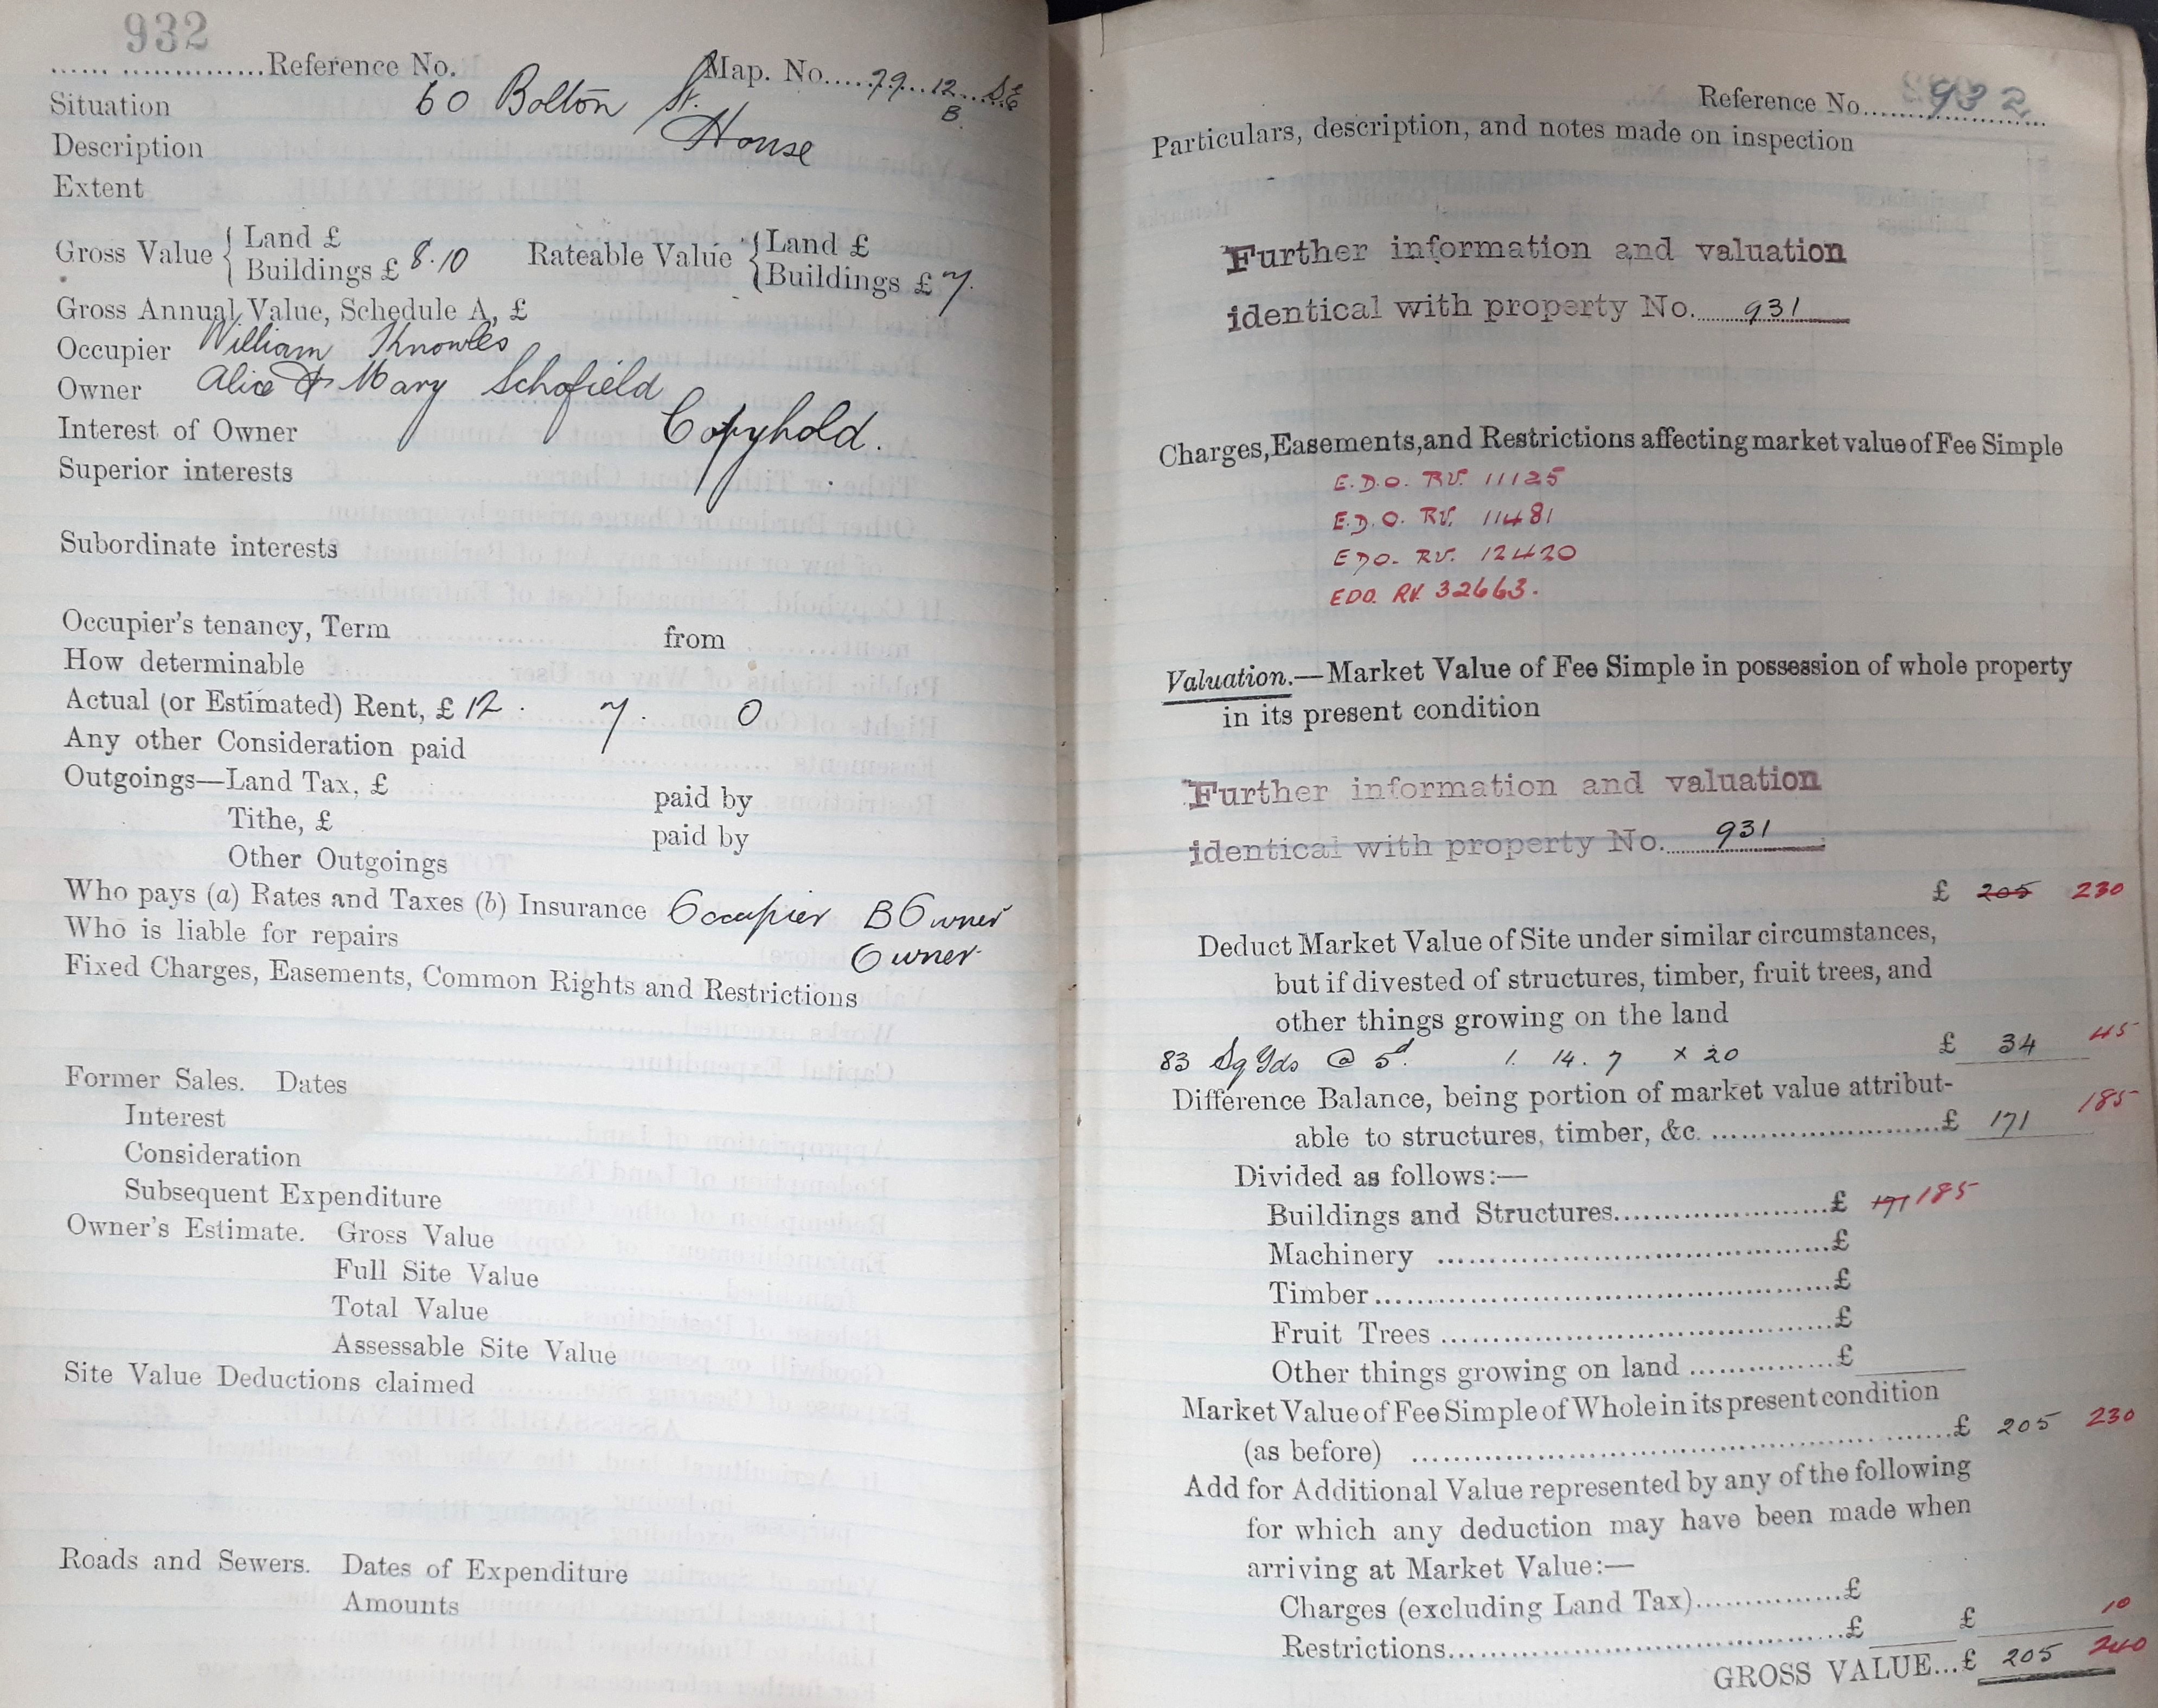 932
Reference No. Map. No. 79 12 SE
B
Situation 60 Bolton St.
Description House
Extent
Gross Value { Land £ Rateable Value { Land £
Buildings £ 8.10 Buildings £ 7.
Gross Annual Value, Schedule A, £
Occupier William Knowles
Owner Alice & Mary Schofield
Interest of Owner Copyhold.
Superior interests
Subordinate interests
Occupier's tenancy, Term from
How determinable
Actual (or Estimated) Rent, £ 12 . 7 . 0
Any other Consideration paid
Outgoings—Land Tax, £ paid by
Tithe, £ paid by
Other Outgoings
Who pays (a) Rates and Taxes (b) Insurance Occupier B Owner
Who is liable for repairs Owner
Fixed Charges, Easements, Common Rights and Restrictions
Former Sales. Dates
Interest
Consideration
Subsequent Expenditure
Owner's Estimate. Gross Value
Full Site Value
Total Value
Assessable Site Value
Site Value Deductions claimed
Roads and Sewers. Dates of Expenditure
Amounts
Reference No. 932
Particulars, description, and notes made on inspection
Further information and valuation
identical with property No. 931
Charges, Easements, and Restrictions affecting market value of Fee Simple
E.D.O. RV. 11125
E.D.O. RV. 11481
EDO. RV. 12420
EDO. RV. 32663.
Valuation.—Market Value of Fee Simple in possession of whole property
in its present condition
Further information and valuation
identical with property No. 931
£ 205 230
Deduct Market Value of Site under similar circumstances,
but if divested of structures, timber, fruit trees, and
other things growing on the land
83 Sq Yds @ 5d. 1. 14. 7 x 20 £ 34 45
Difference Balance, being portion of market value attribut-
able to structures, timber, &c. £ 171 185
Divided as follows:—
Buildings and Structures £ 171 185
Machinery £
Timber £
Fruit Trees £
Other things growing on land £
Market Value of Fee Simple of Whole in its present condition
(as before) £ 205 230
Add for Additional Value represented by any of the following
for which any deduction may have been made when
arriving at Market Value:—
Charges (excluding Land Tax) £
Restrictions £ £ 10
GROSS VALUE...£ 205 240